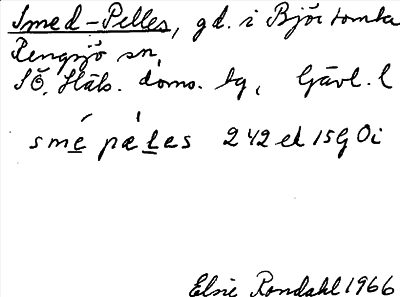 Smed-Pelles, gd. i Björtomta
Rengsjö sn,
SÖ. Häls. doms. tg, Gävl. l
smé pǽles 242 ek 15G0i
Elsie Rondahl 1966